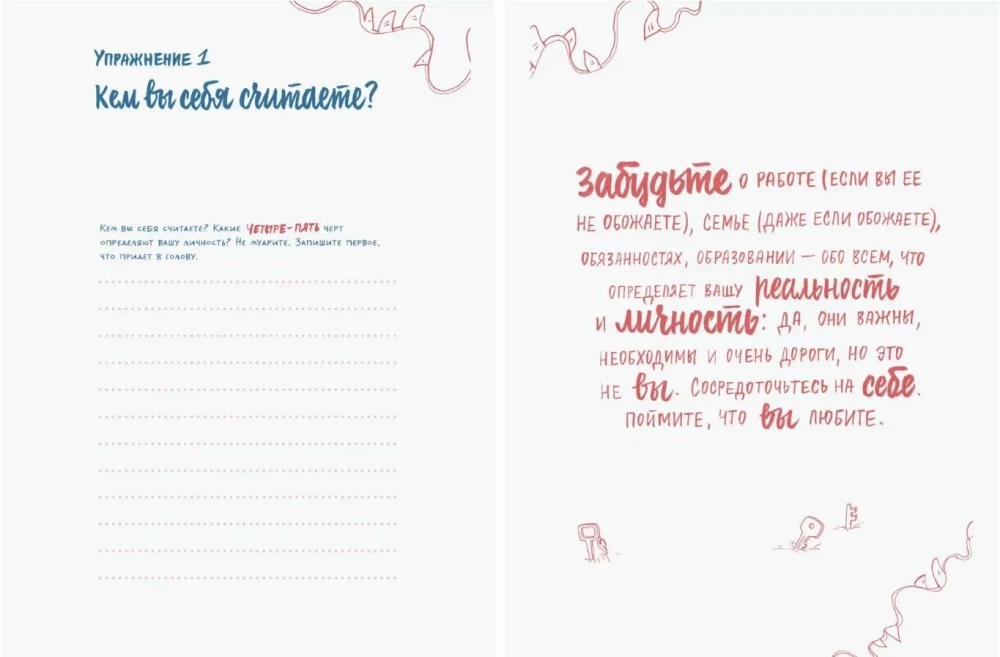 Упражнение 1
Кем вы себя считаете?
Кем вы себя считаете? Какие четыре-пять черт
определяют вашу личность? Не мудрите. Запишите первое,
что придет в голову.
Забудьте о работе (если вы ее
не обожаете), семье (даже если обожаете),
обязанностях, образовании – обо всем, что
определяет вашу реальность
и личность: да, они важны,
необходимы и очень дороги, но это
не вы. Сосредоточьтесь на себе.
Поймите, что вы любите.